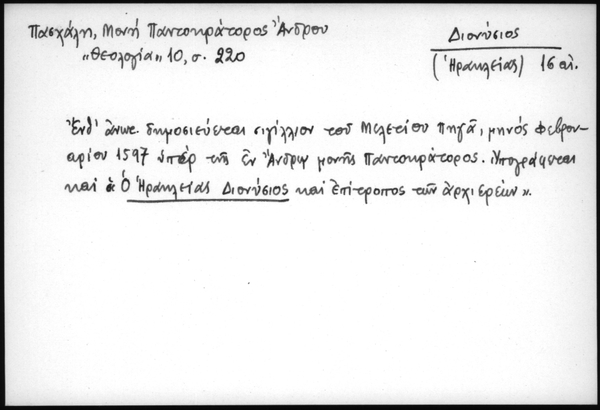 Πασχάλη, Μονή Παντοκράτορος Ἄνδρου
«Θεολογία» 10, σ. 220
Διονύσιος
(Ἡρακλείας) 16 αἰ.
Ἔνθ' ἀνωτ. δημοσιεύεται σιγίλλιον τοῦ Μελετίου Πηγᾶ, μηνός Φεβρου-
αρίου 1597 ὑπέρ τῆς ἐν Ἄνδρῳ μονῆς Παντοκράτορος. Ὑπογράφεται
καί «Ὁ Ἡρακλείας Διονύσιος καί ἐπίτροπος τῶν ἀρχιερέων».